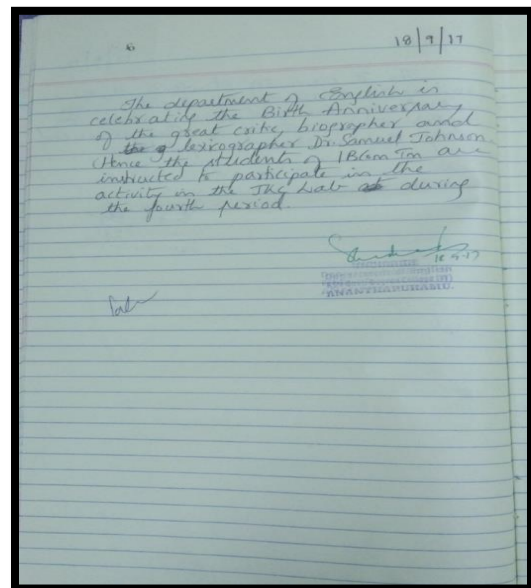 6
18/9/17
The department of English is
celebrating the Birth Anniversary
of the great critic, biographer and
lexicographer Dr. Samuel Johnson
Hence the students of I BCom Tm are
instructed to participate in the
activity in the JKC Lab during
the fourth period.
18.9.17
ANANTHAPURAMU.